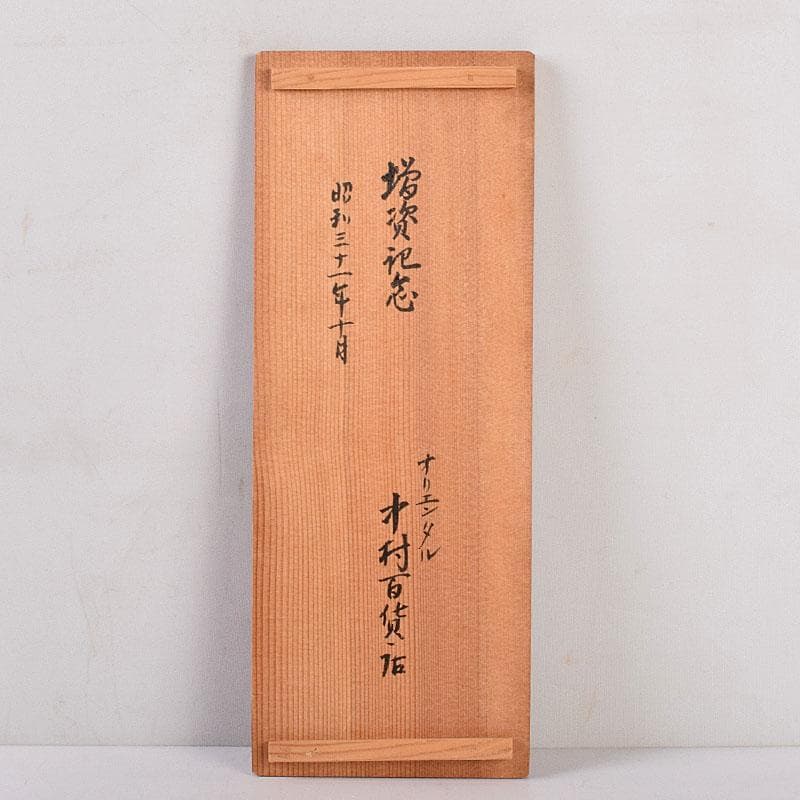 増資記念
昭和三十一年十月
オリエンタル
中村百貨店